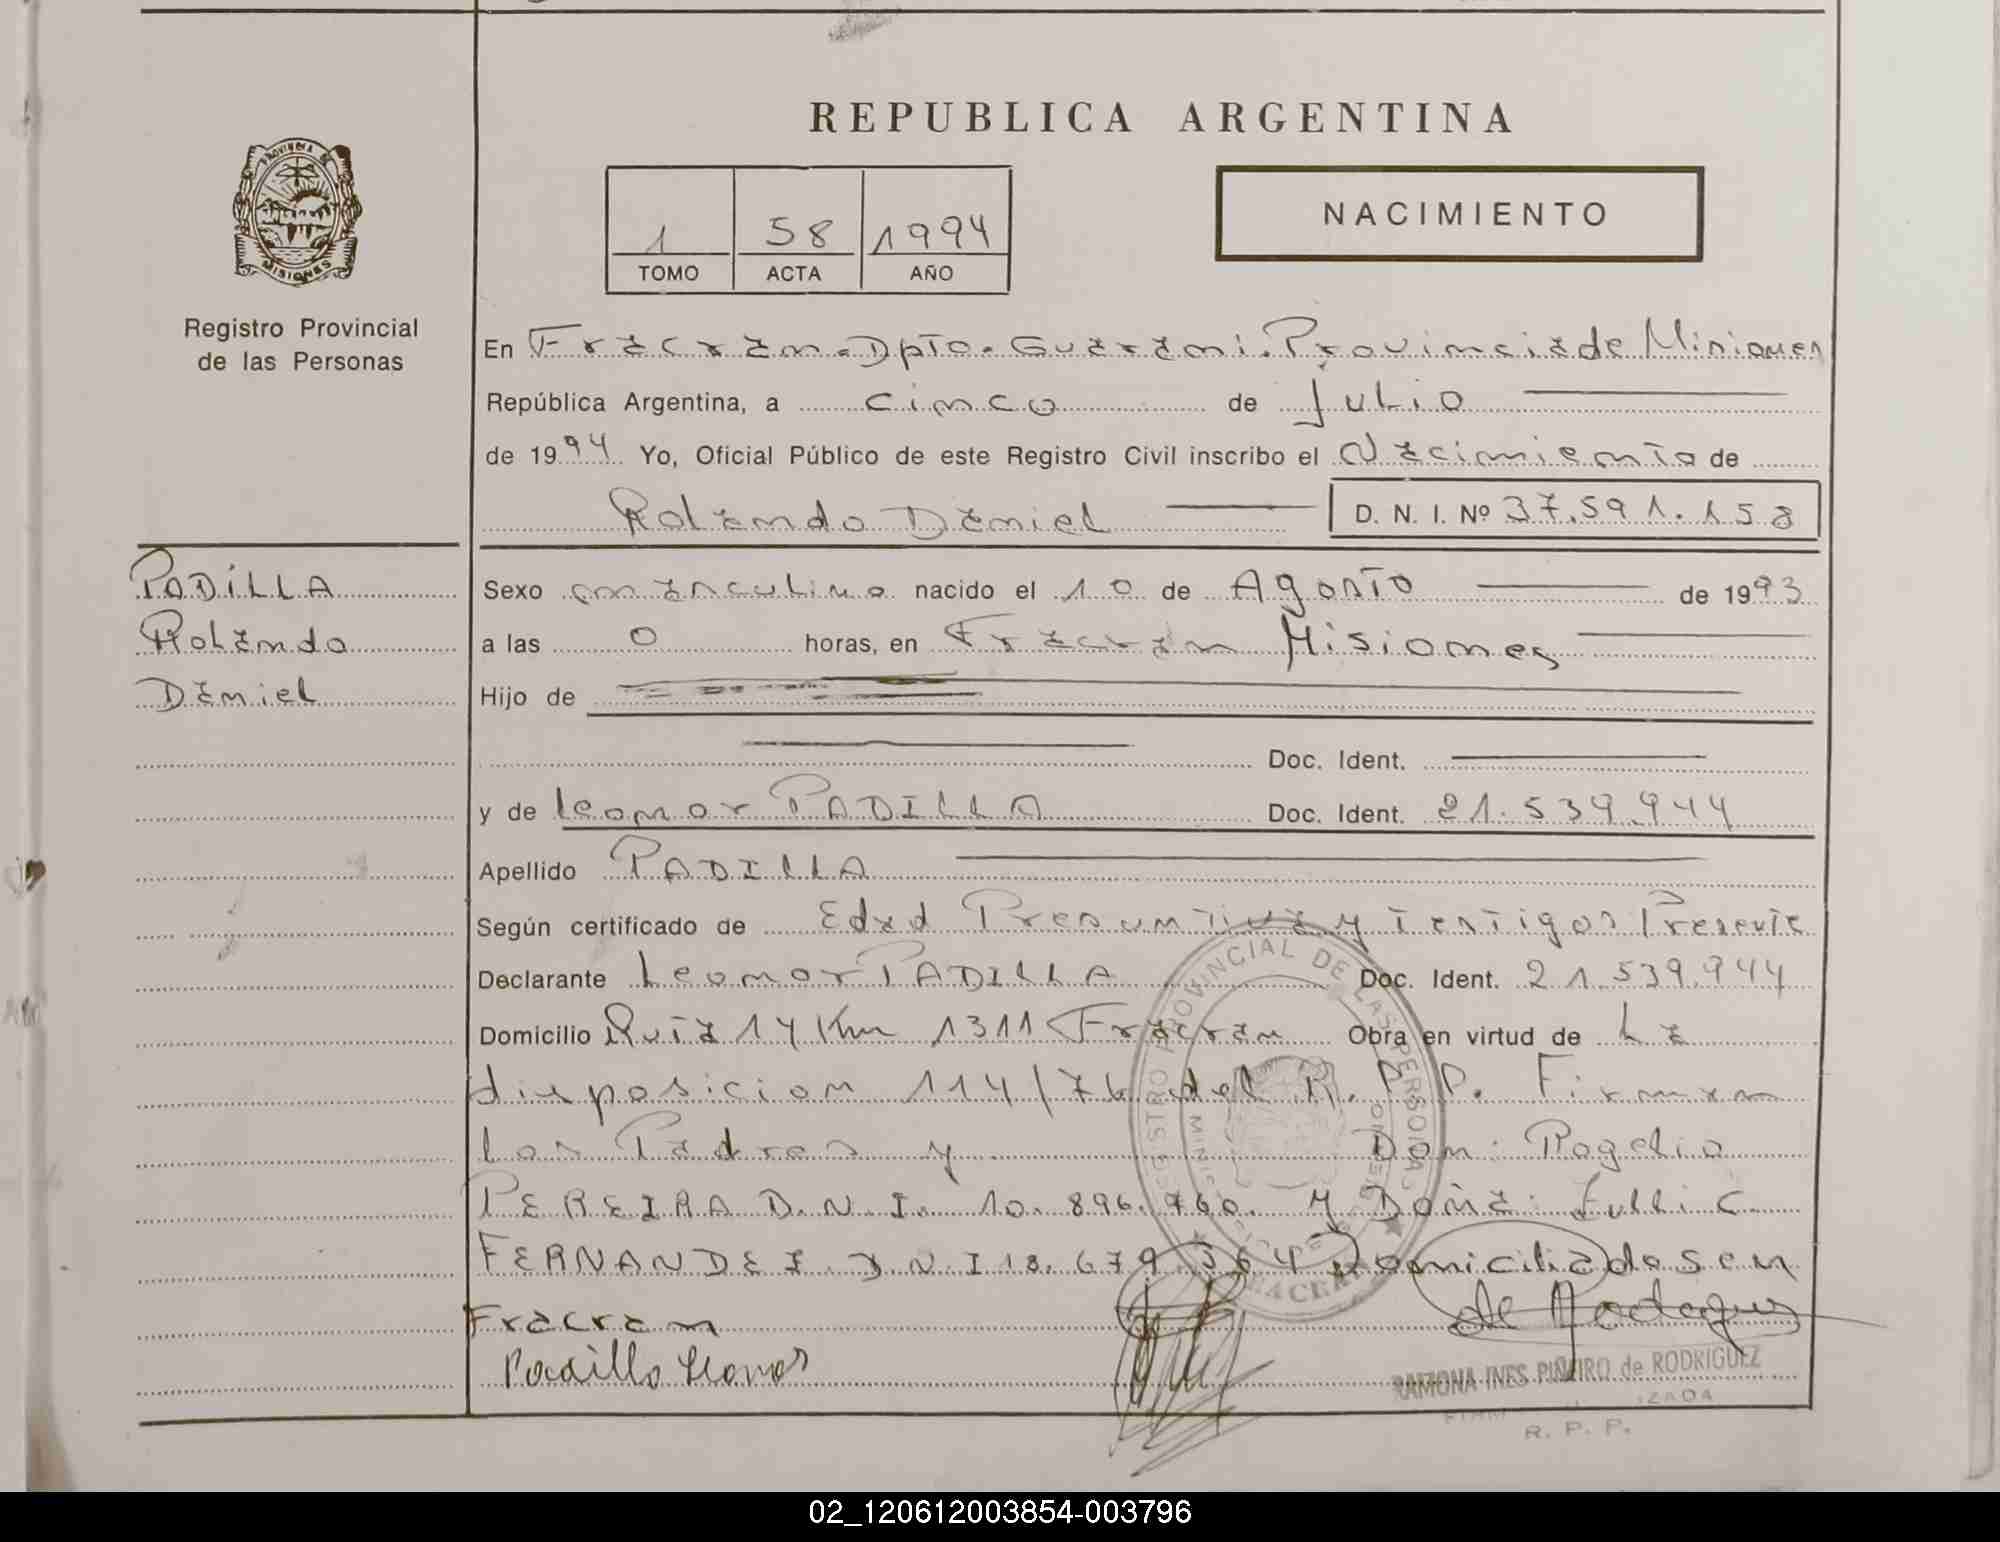 REPUBLICA ARGENTINA
PROVINCIA DE
MISIONES
Registro Provincial
de las Personas
1 58 1994
TOMO ACTA AÑO
NACIMIENTO
En Fracran - Dpto - Guarani. Provincia de Misiones
República Argentina, a cinco de Julio
de 1994 Yo, Oficial Público de este Registro Civil inscribo el Nacimiento de
Rolando Daniel D. N. I. Nº 37.591.158
PADILLA
Rolando
Daniel
Sexo masculino nacido el 10 de Agosto de 1993
a las 0 horas, en Fracran Misiones
Hijo de
Doc. Ident.
y de Leonor PADILLA Doc. Ident. 21.539.944
Apellido PADILLA
Según certificado de Edad Presuntiva y Testigos Presente
Declarante Leonor PADILLA Doc. Ident. 21.539.944
Domicilio Ruta 14 Km 1311 Fracran Obra en virtud de La
disposicion 114/76 del R. P. P. Firman
los Padres y Don: Rogelio
PEREIRA D.N.I. 10.896.760. y Doña: C.
FERNANDEZ D N I 18.679.364 Domiciliados en
Fracran
Padilla Leonor
REGISTRO PROVINCIAL DE LAS PERSONAS
RAMONA INES PIÑEIRO de RODRIGUEZ
R. P. P.
02_120612003854-003796